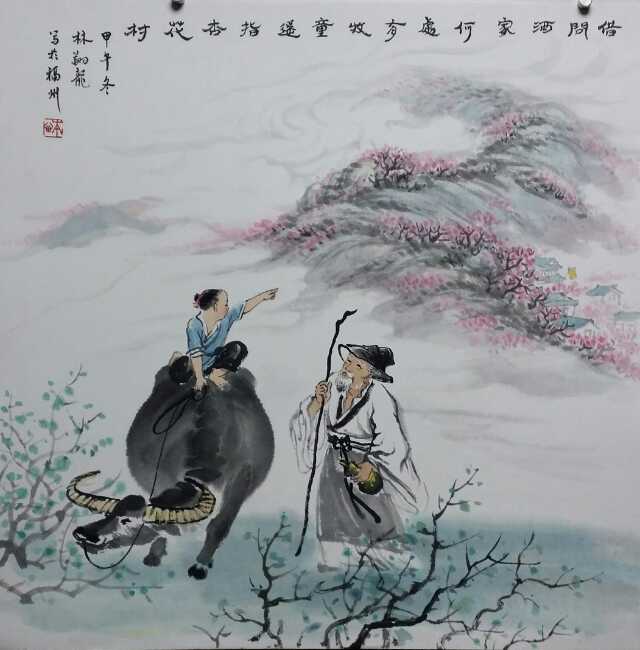 借問酒家何處有牧童遥指杏花村
甲午冬
林翔龍
写於福州